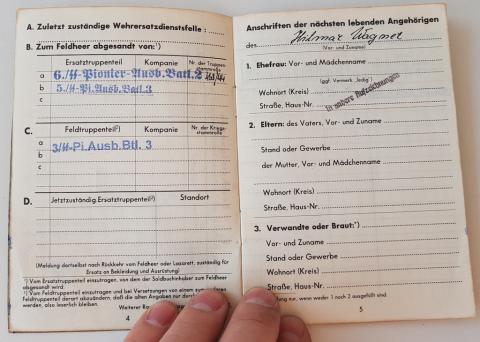 A. Zuletzt zuständige Wehrersatzdienststelle :
B. Zum Feldheer abgesandt von:¹)
Ersatztruppenteil Kompanie Nr. der Truppen-stammrolle
a 6./SS-Pionier-Ausb.Batl. 2
b 5./SS-Pi.Ausb.Batl.3
c
C. Feldtruppenteil²) Kompanie Nr. der Kriegs-stammrolle
a 3/SS-Pi.Ausb.Btl. 3
b
c
D. Jetzt zuständig. Ersatztruppenteil²) Standort
(Meldung dortselbst nach Rückkehr vom Feldheer oder Lazarett, zuständig für
Ersatz an Bekleidung und Ausrüstung)
¹) Vom Ersatztruppenteil einzutragen, von dem der Soldbuchinhaber zum Feldheer
abgesandt wird.
²) Vom Feldtruppenteil einzutragen und bei Versetzungen von einem zum anderen
Feldtruppenteil derart abzuändern, daß die alten Angaben nur
leserlich bleiben.
Weiterer
4
Anschriften der nächsten lebenden Angehörigen
des Hilmar Wagner
(Vor- und Zuname)
1. Ehefrau: Vor- und Mädchenname
(ggf. Vermerk „ledig")
Wohnort (Kreis)
Straße, Haus-Nr.
2. Eltern: des Vaters, Vor- und Zuname
Stand oder Gewerbe
der Mutter, Vor- und Mädchenname
Wohnort (Kreis)
Straße, Haus-Nr.
3. Verwandte oder Braut:*)
Vor- und Zuname
Stand oder Gewerbe
Wohnort (Kreis)
Straße, Haus-Nr.
nur, wenn weder 1 noch 2 ausgefüllt sind.
5